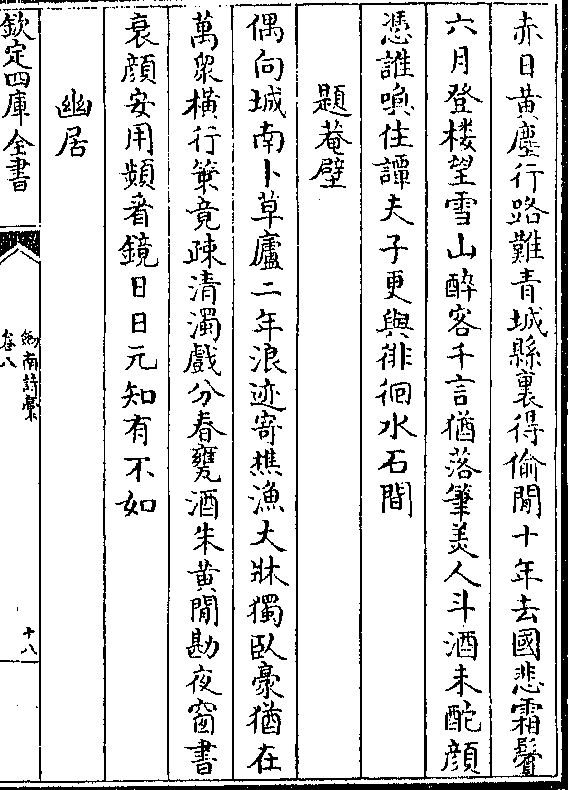 赤日黄塵行路難青城縣裏得偷閒十年去國悲霜鬢
六月登樓望雪山醉客千言猶落筆美人斗酒未酡顔
憑誰喚住譚夫子更與徘徊水石間
題菴壁
偶向城南卜草廬二年浪迹寄樵漁大牀獨臥豪猶在
萬衆橫行策竟疎清濁戲分春甕酒朱黄閒勘夜窗書
衰顔安用頻看鏡日日元知有不如
幽居
欽定四庫全書
劒南詩藁
卷八
十八